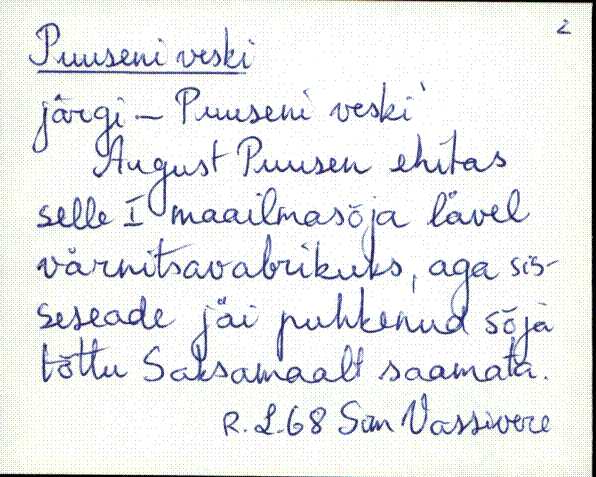 2
Puuseni veski
järgi – Puuseni veski'
August Puusen ehitas
selle I maailmasõja lävel
värnitsavabrikuks, aga sis-
seseade jäi puhkenud sõja
tõttu Saksamaalt saamata.
R. L-68 Sim Vassivere